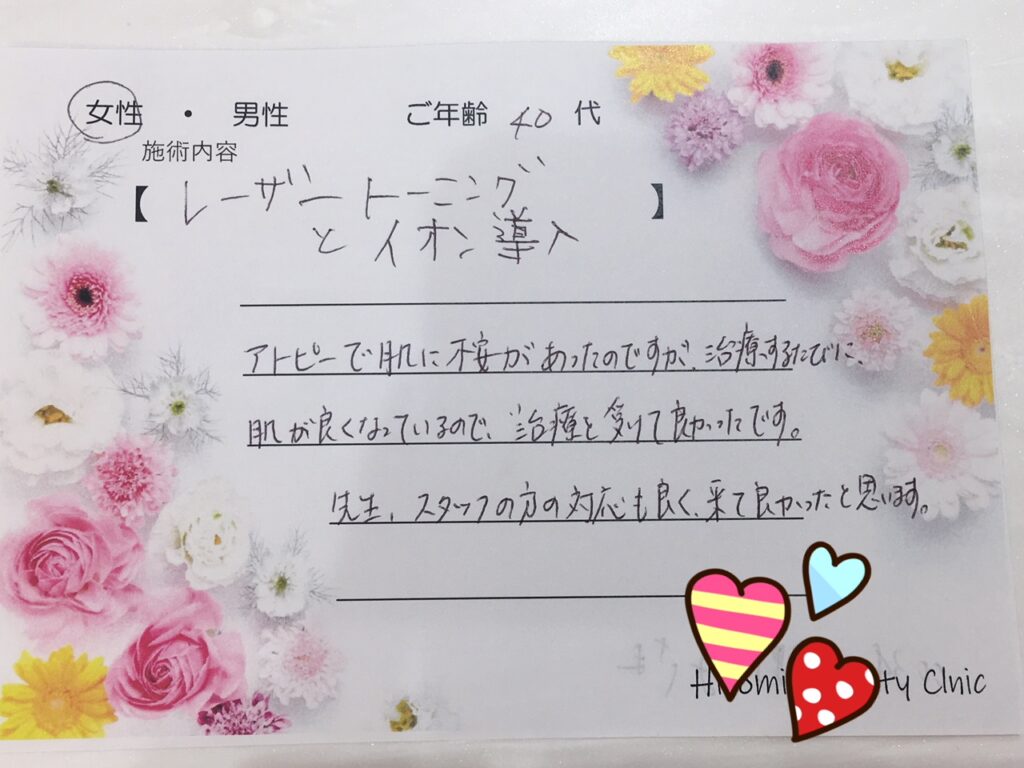 女性 ・ 男性 ご年齢 40 代
施術内容
【 レーザートーニング 】
とイオン導入
アトピーで肌に不安があったのですが、治療するたびに、
肌が良くなっているので、治療を受けて良かったです。
先生、スタッフの方の対応も良く、来て良かったと思います。
ty Clnic